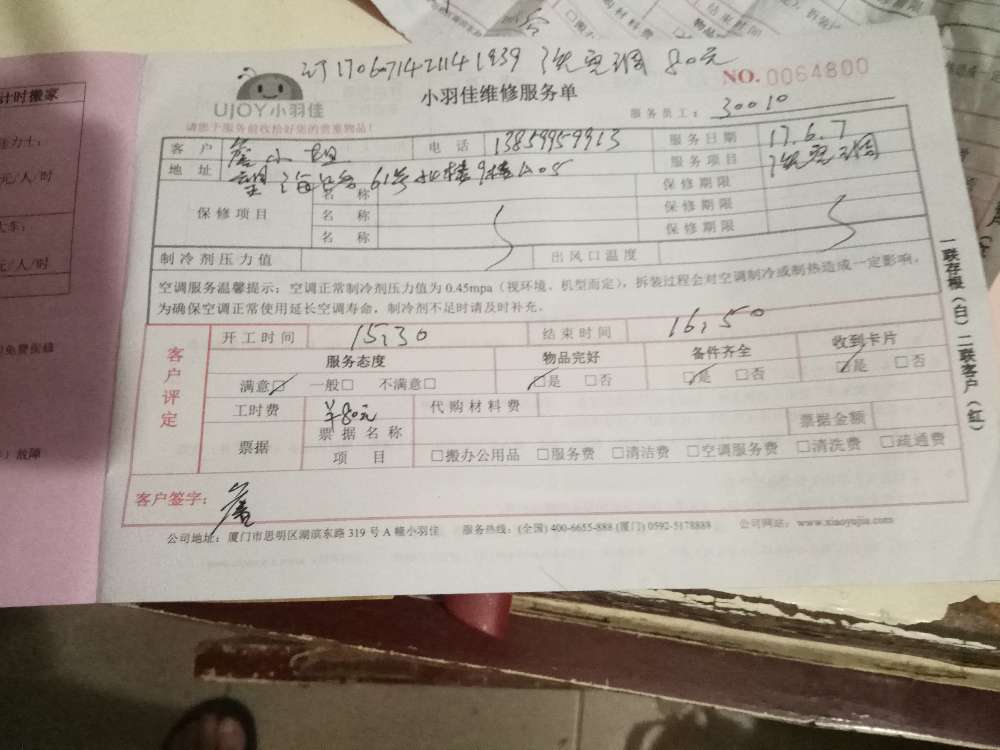 订170671421141939 洗空调 80元
NO.0064800
UJOY小羽佳
小羽佳维修服务单
服务员工: 30010
请您于服务前收拾好您的贵重物品!
客户 詹小姐 电话 13859959913 服务日期 17.6.7
地址 61号 9楼 服务项目 洗空调
保修项目 名称 保修期限
名称 保修期限
名称 保修期限
制冷剂压力值 出风口温度
空调服务温馨提示: 空调正常制冷剂压力值为0.45mpa(视环境、机型而定),拆装过程会对空调制冷或制热造成一定影响,
为确保空调正常使用延长空调寿命,制冷剂不足时请及时补充。
客户评定
开工时间 15:30 结束时间 16:50
服务态度 物品完好 备件齐全 收到卡片
满意☑ 一般□ 不满意□ ☑是 □否 ☑是 □否 ☑是 □否
工时费 ¥80元 代购材料费
票据 票据名称 票据金额
项目 □搬办公用品 □服务费 □清洁费 □空调服务费 □清洗费 □疏通费
客户签字: 詹
公司地址: 厦门市思明区湖滨东路319号A幢小羽佳 服务热线: (全国) 400-6655-888 (厦门) 0592-5178888 公司网站: www.xiaoyujia.com
一联存根(白) 二联客户(红)
计时搬家
元/人/时
元/人/时
故障